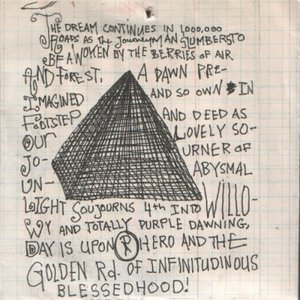 THE DREAM CONTINUES IN 1,000,000
ROADS AS THE JOURNEYMAN SLUMBERS TO
BE AWOKEN BY THE BERRIES OF AIR
AND FOREST, A DAWN PRE-
IMAGINED AND SO OWN IN
FOOTSTEP AND DEED AS
OUR LOVELY SO-
JO- URNER OF
UN- ABYSMAL
LIGHT SOUJOURNS 4th INTO WILLO-
WY AND TOTALLY PURPLE DAWNING,
DAY IS UPON R HERO AND THE
GOLDEN Rd. OF INFINITUDINOUS
BLESSEDHOOD!